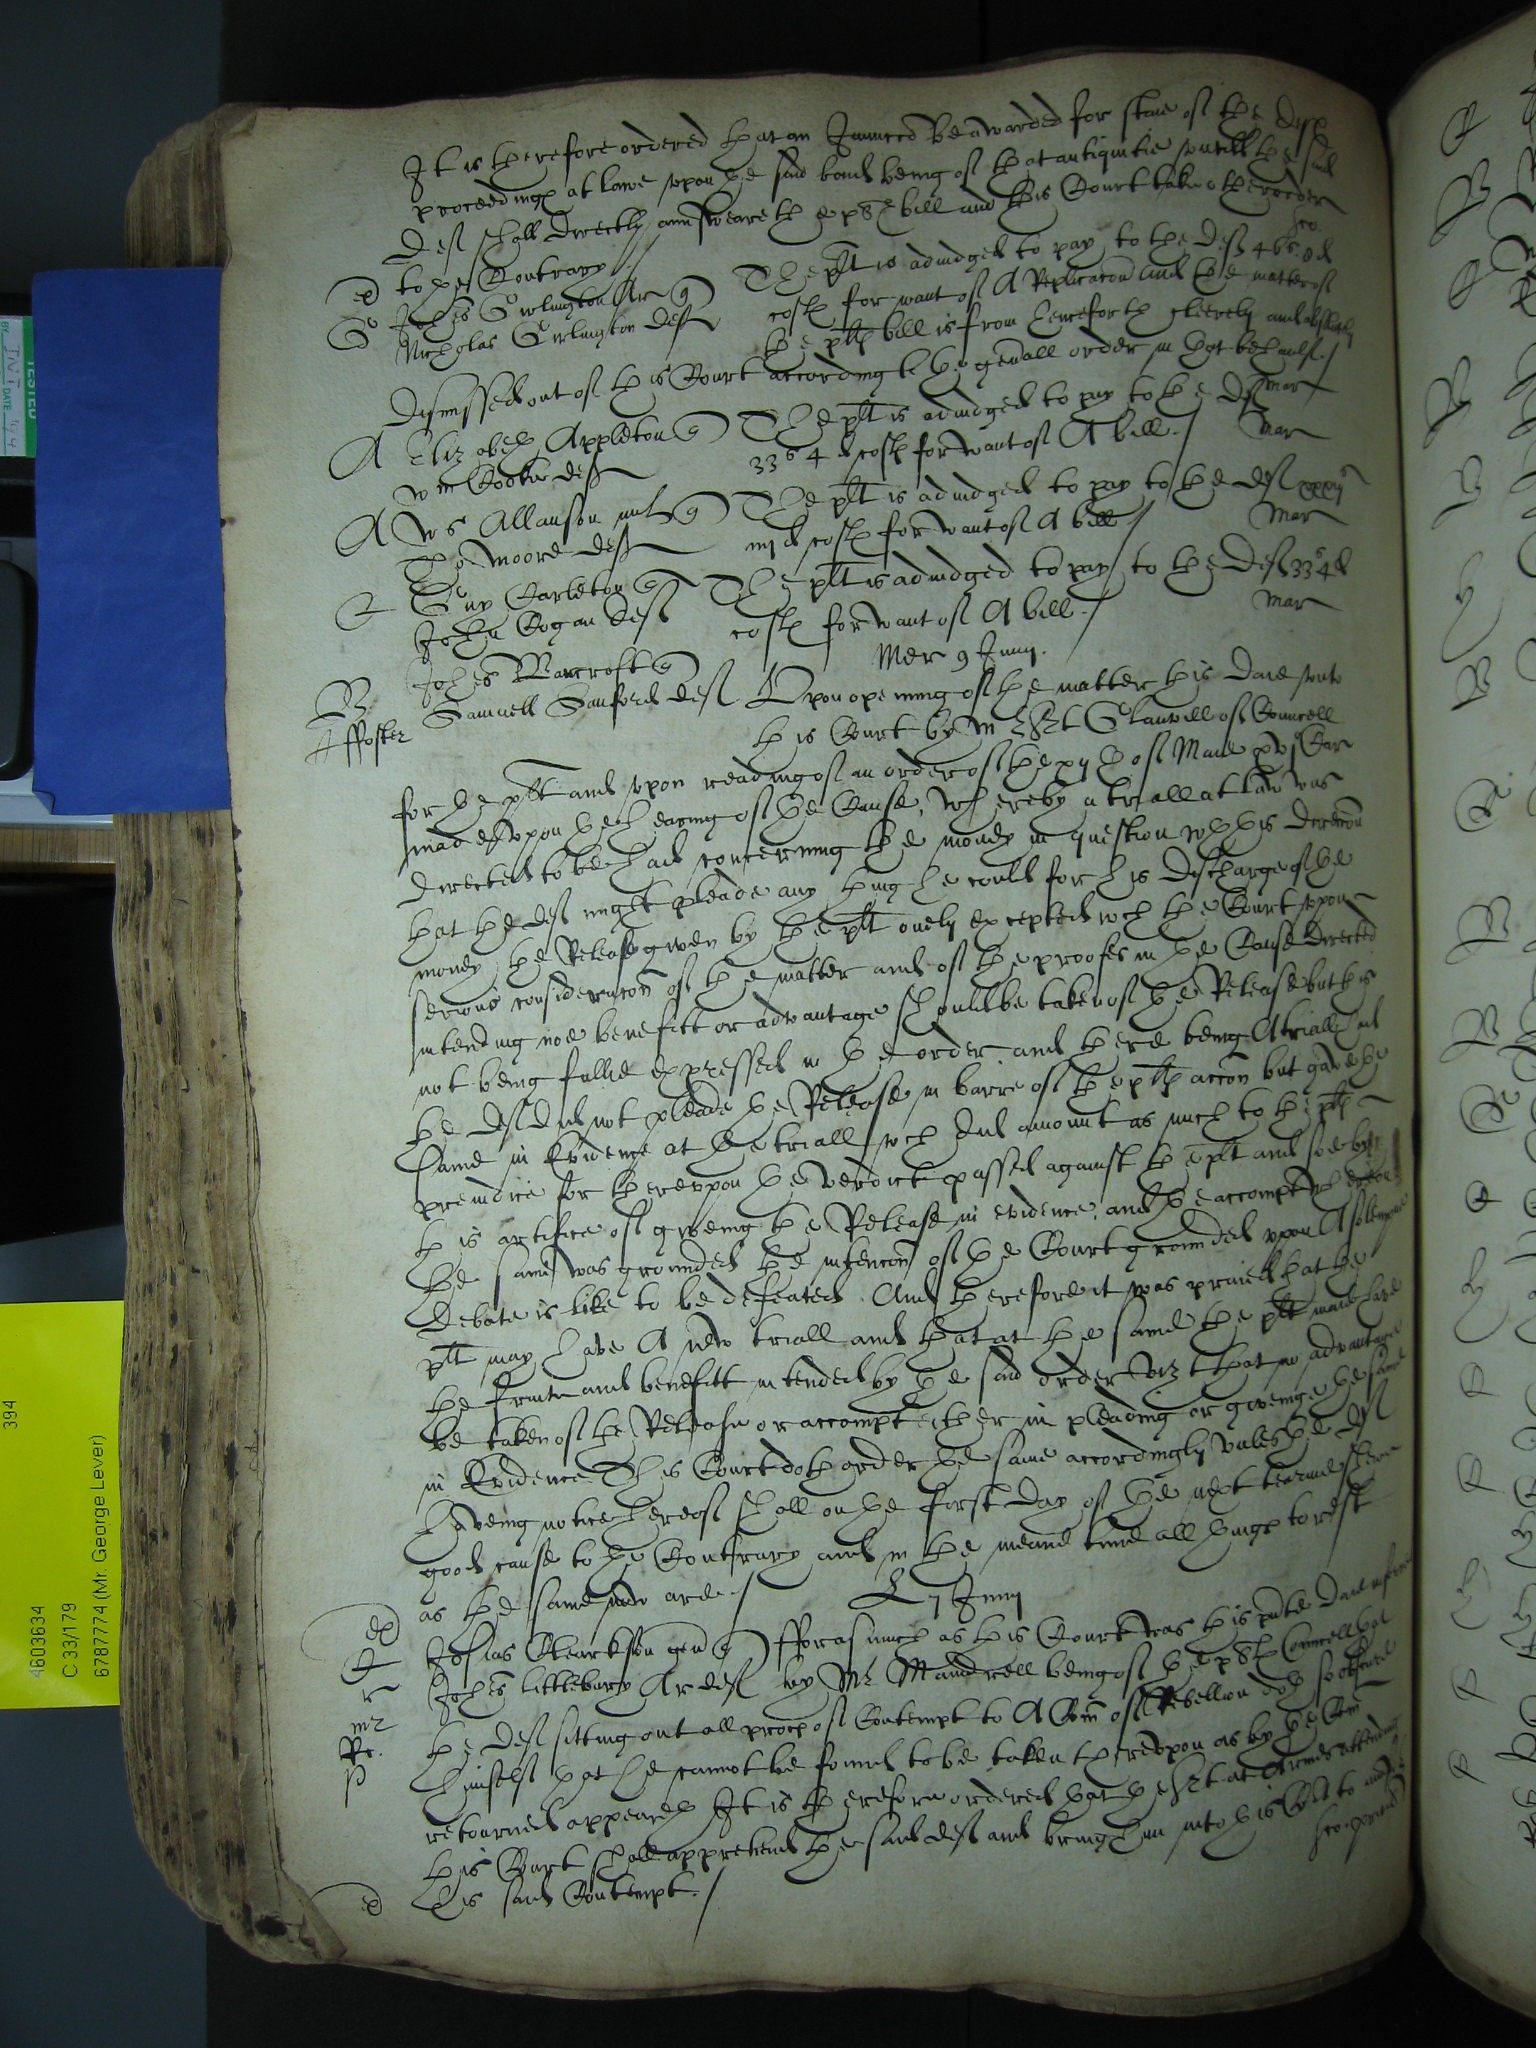 It is therefore ordered that an Iniunccō be awarded for staie of the deftes
proceedinges at lawe vpon the said bond being of that antiquitie vntill the said
deft shall directly annsweare the pltes bill and this Court take other order
to the Contrary
Johēs Girlington Ar
Nicholas Girlington deft
The plt is adiudged to pay to the deft 46s 8d
costes for want of A Replicacoñ and the matter of
the pltes bill is from henceforth cleerely and absolutely
dismissed out of this Court according to the genall order in that behaulf
A Elizabeth Appleton
Wm Cooke deft
The plt is adiudged to pay to the deft
33s 4d costes for want of A bill
Mar
A Ws Allanson
Tho Moore deft
The plt is adiudged to pay to the deft xxxiijs
iiijd costes for want of A bill
Mar
C Guy Carleton
John Cogan deft
The plt is adiudged to pay to the deft 33s 4d
costes for want of A bill
Mar
Mer 9 Junij
B Johēs Barcroft
Samuell Sanford deft
A ffoster
Vpon opening of the matter this daie vnto
this Court by Mr Glanvill of Councell
for the plt and vpon reading of an order of the of Maie
made vpon the hearing of the Cause, whereby a triall at law was
directed to be had concerning the money in question wth this direccoñ
that the deft might pleade any thing he could for his discharge of the
money the Release given by the plt onely excepted wch the Court vpon
serious consideracoñ of the matter and of the proofes in the Cause directed
intending noe benefitt or advantage should be taken of the Release but this
not being fullie expressed in the order and there being A triall had
the deft did not pleade the Release in barre of the pltes accoñ but gave the
same in Evidence at the triall wch did amount as much to the pltes
preiudice for therevpon the verdict passed against the plt and soe by
this artifice of giveing the Release in evidence, and the accompt
the same was grounded the intencoñ of the Court grounded vpon A solempne
debate is like to be defeated. And therefore it was praied that the
plt may have A new triall and that at the same the plt maie have
the fruite and benefitt intended by the said order vizt that no advantage
be taken of the Release or accompt either in pleading or giveinge the same
in Evidence This Court doth order the same accordingly vnles the deft
haveing notice hereof shall on the first day of the next tearme shew
good cause to the Contrary and in the meane time all thinges to rest
as the same now are
7 Junij
C Josias Clearkson gen
Johēs Littlebury Ar deft
fforasmuch as this Court was this pnte daie informed
by Mr Maundrell being of the pltes Councell that
the deft sitting out all proces of Contempt to A Com̄ of Rebellion doth so obscure
himself that he cannot be found to be taken therevpon as by the Com̄
retourned appeareth It is therefore ordered that the Srt at Armes attending
this Court shall apprehend the said deft and bring him into this Court to
his said Contempt
394
4603634
C 33/179
6787774 (Mr. George Lever)
TESTED
BY
DATE